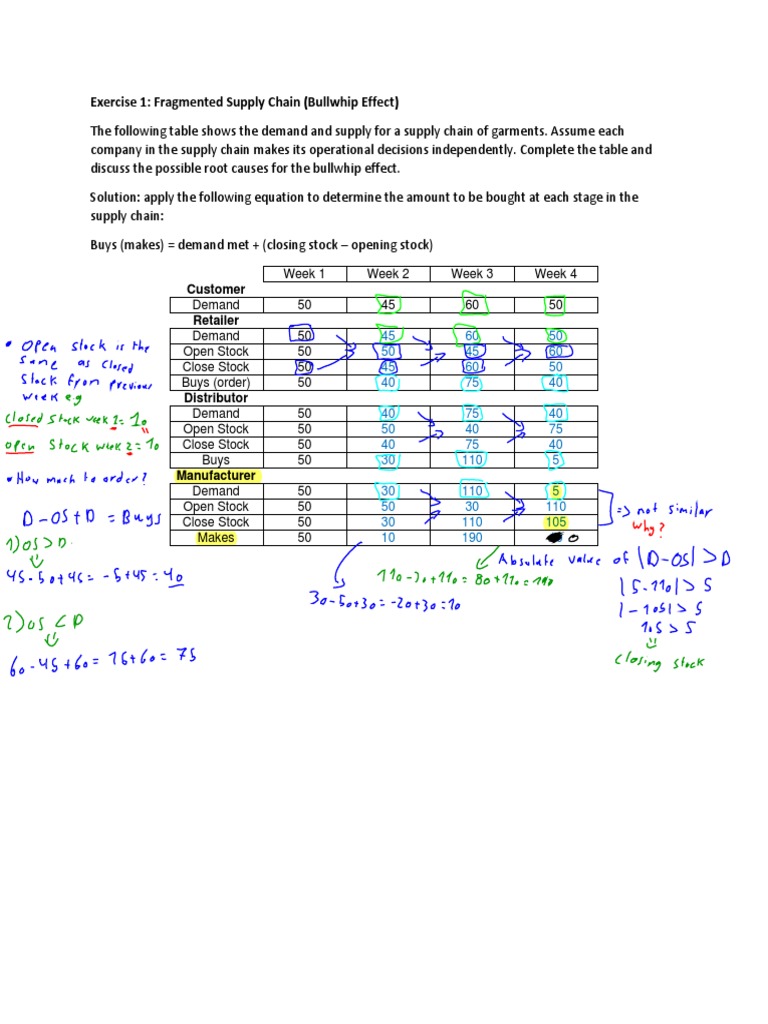 Exercise 1: Fragmented Supply Chain (Bullwhip Effect)
The following table shows the demand and supply for a supply chain of garments. Assume each
company in the supply chain makes its operational decisions independently. Complete the table and
discuss the possible root causes for the bullwhip effect.
Solution: apply the following equation to determine the amount to be bought at each stage in the
supply chain:
Buys (makes) = demand met + (closing stock – opening stock)
Week 1 Week 2 Week 3 Week 4
Customer
Demand 50 45 60 50
Retailer
Demand 50 45 60 50
Open Stock 50 50 45 60
Close Stock 50 45 60 50
Buys (order) 50 40 75 40
Distributor
Demand 50 40 75 40
Open Stock 50 50 40 75
Close Stock 50 40 75 40
Buys 50 30 110 5
Manufacturer
Demand 50 30 110 5
Open Stock 50 50 30 110
Close Stock 50 30 110 105
Makes 50 10 190 0
• Open stock is the
same as closed
stock from previous
week e.g
closed stock week 1 = 10
open stock week 2 = 10
• How much to order?
D - OS + D = Buys
1) OS > D
45 - 50 + 45 = -5 + 45 = 40
2) OS < D
60 - 45 + 60 = 15 + 60 = 75
30 - 50 + 30 = -20 + 30 = 10
110 - 30 + 110 = 80 + 110 = 190
=> not similar
why?
Absolute value of |D - OS| > D
|5 - 110| > 5
|-105| > 5
105 > 5
closing stock